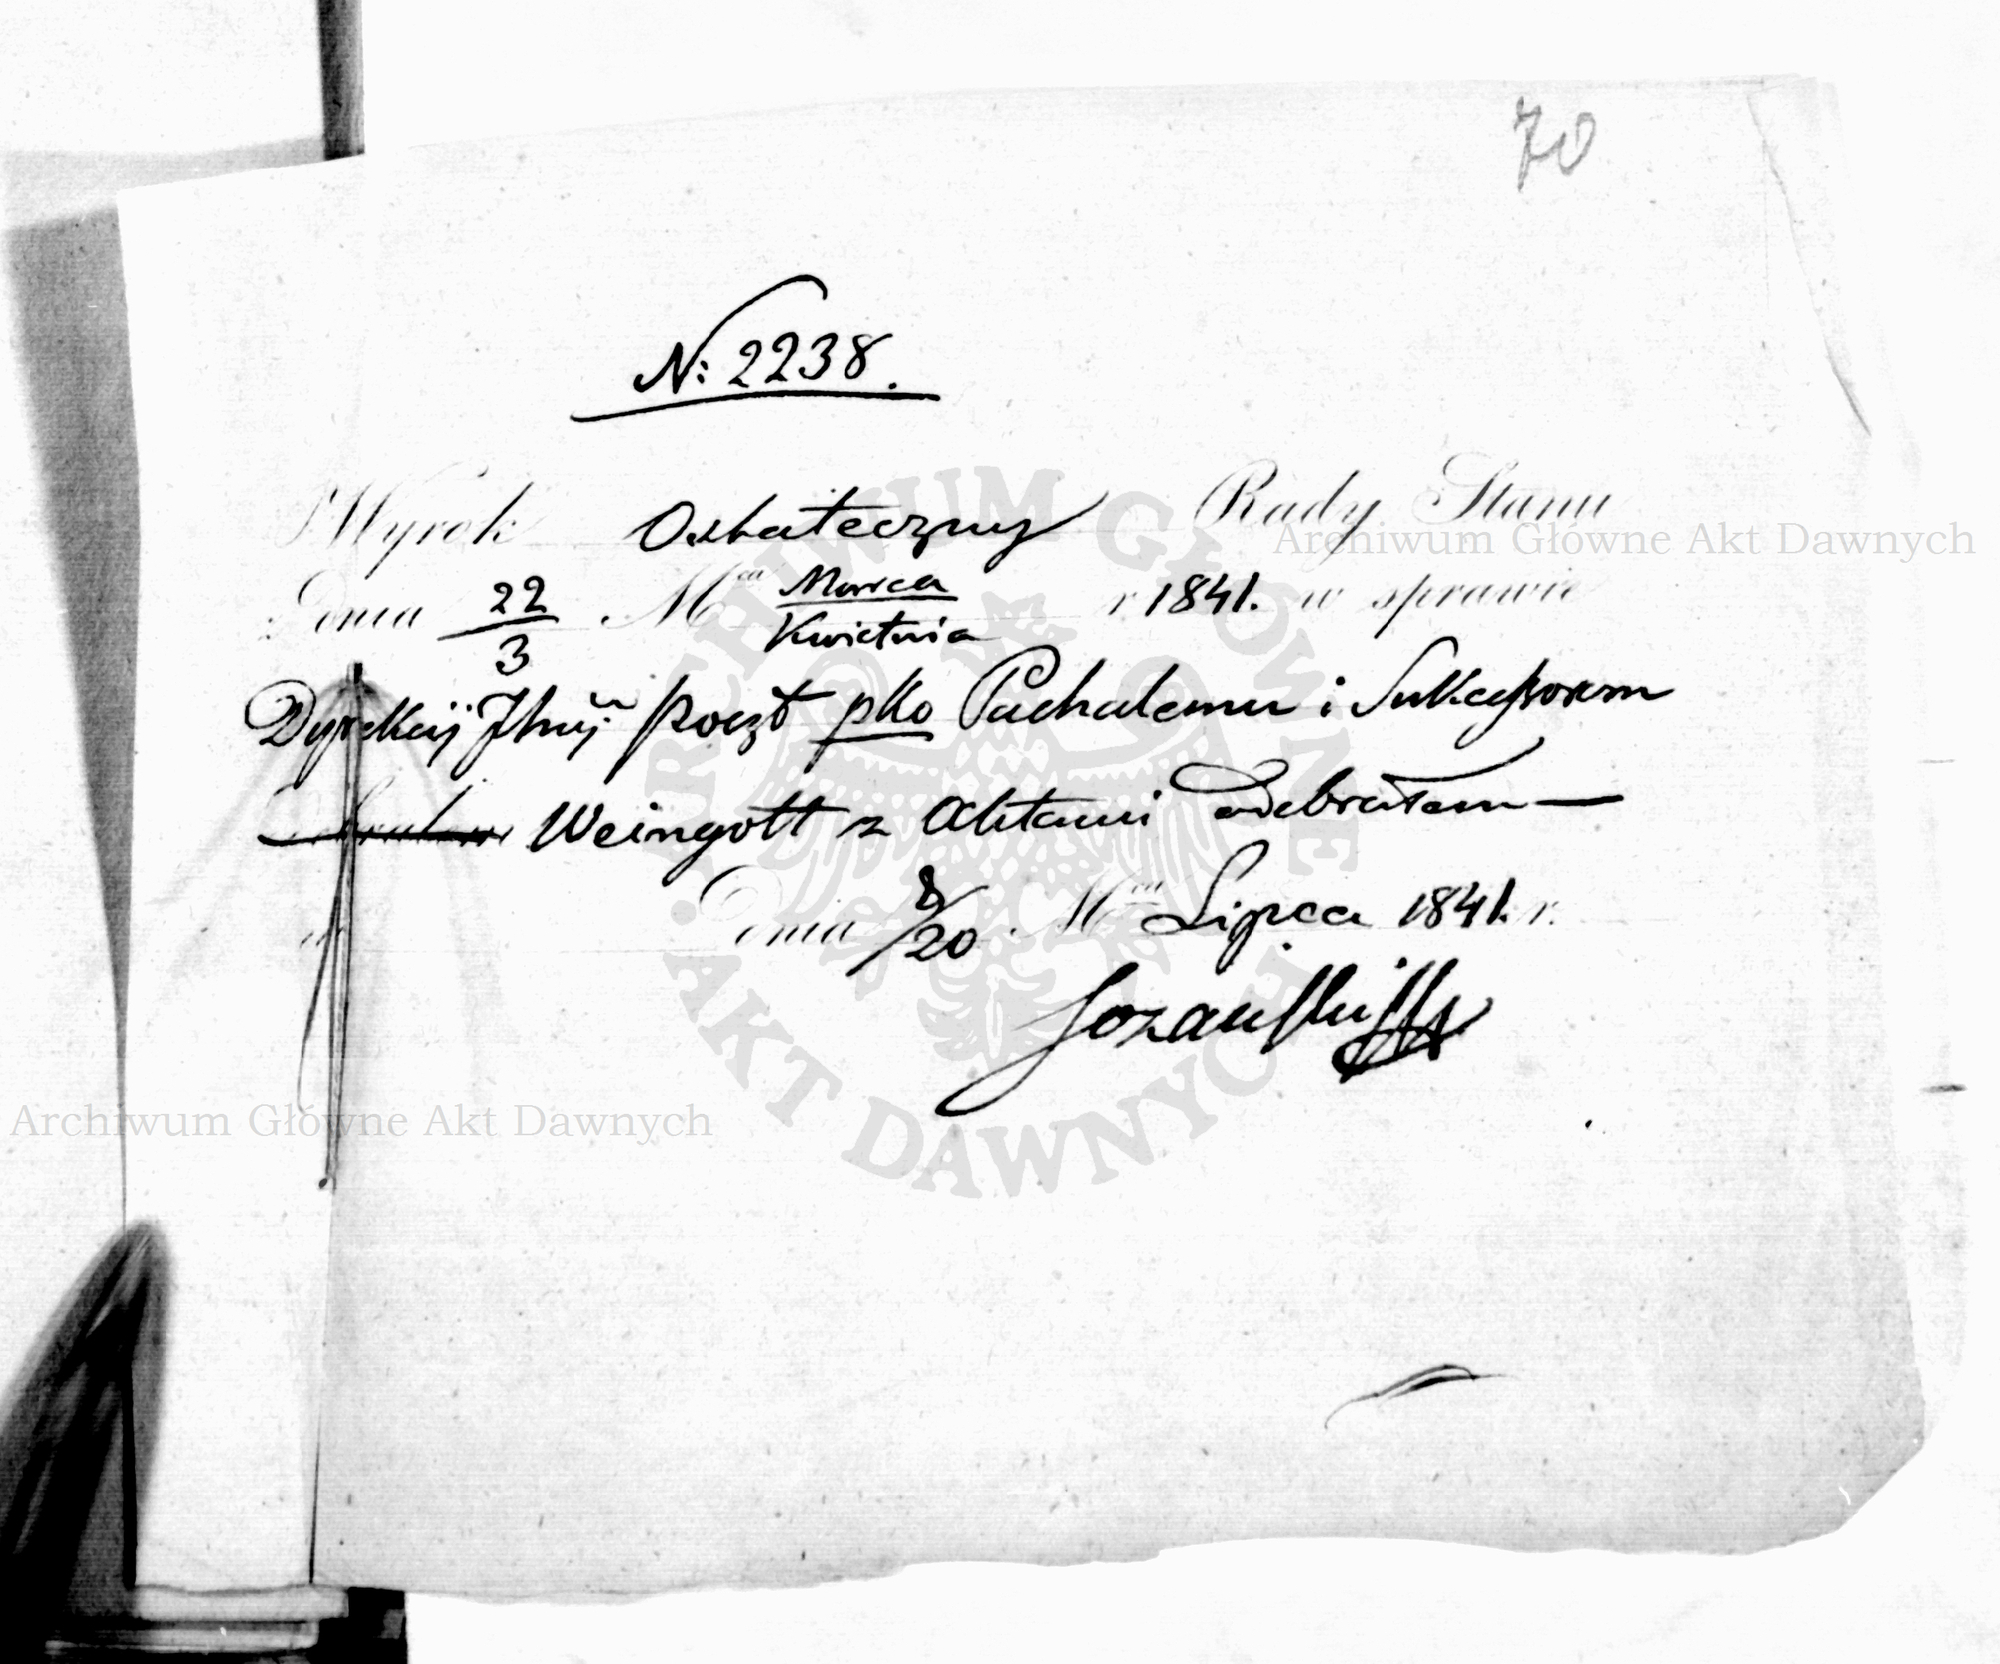 70
N: 2238.
Wyrok Ostateczny Rady Stanu
z Dnia 22/3 Mca Marca/Kwietnia r 1841. w sprawie
Dyrekcij Jlnej Poczt pko Pachalemu i Sukcessorom
Weingott z Aktami odebrałem —
Dnia 8/20 Mca Lipca 1841. r.
Archiwum Główne Akt Dawnych
Archiwum Główne Akt Dawnych
ARCHIWUM GŁÓWNE AKT DAWNYCH